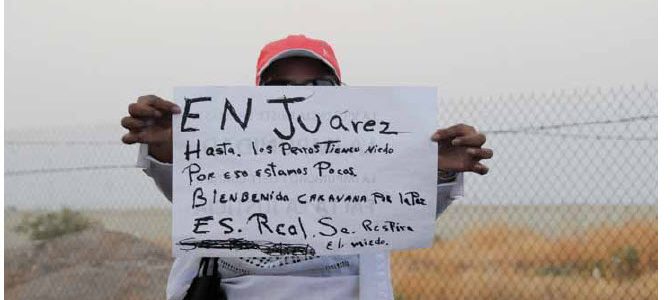 EN Juárez
Hasta. los Perros Tienen Miedo
Por eso estamos Pocos
Bienbenida caravana Por la Paz
ES. Real. Se. Respira
el. miedo.